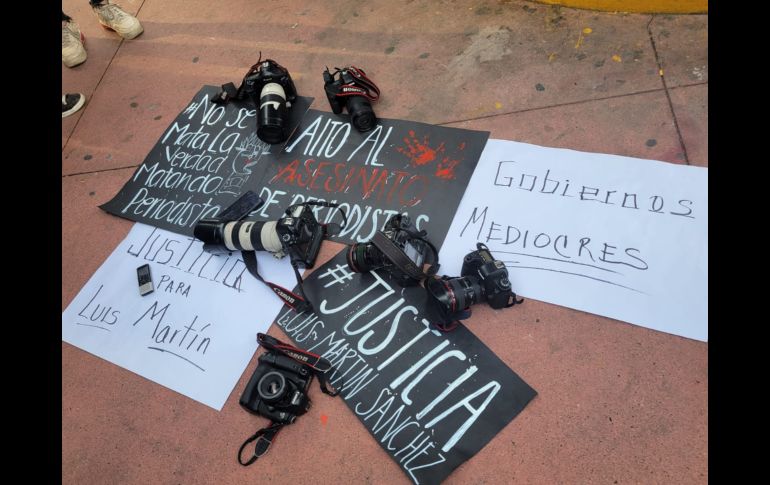 #No se
Mata La
Verdad
Matando
Periodistas
ALTO AL
ASESINATO
DE PERIODISTAS
Gobiernos
MEDIOCRES
JUSTICIA
PARA
Luis Martín
#JUSTICIA
LUIS MARTIN SÁNCHEZ
CANON
CANON